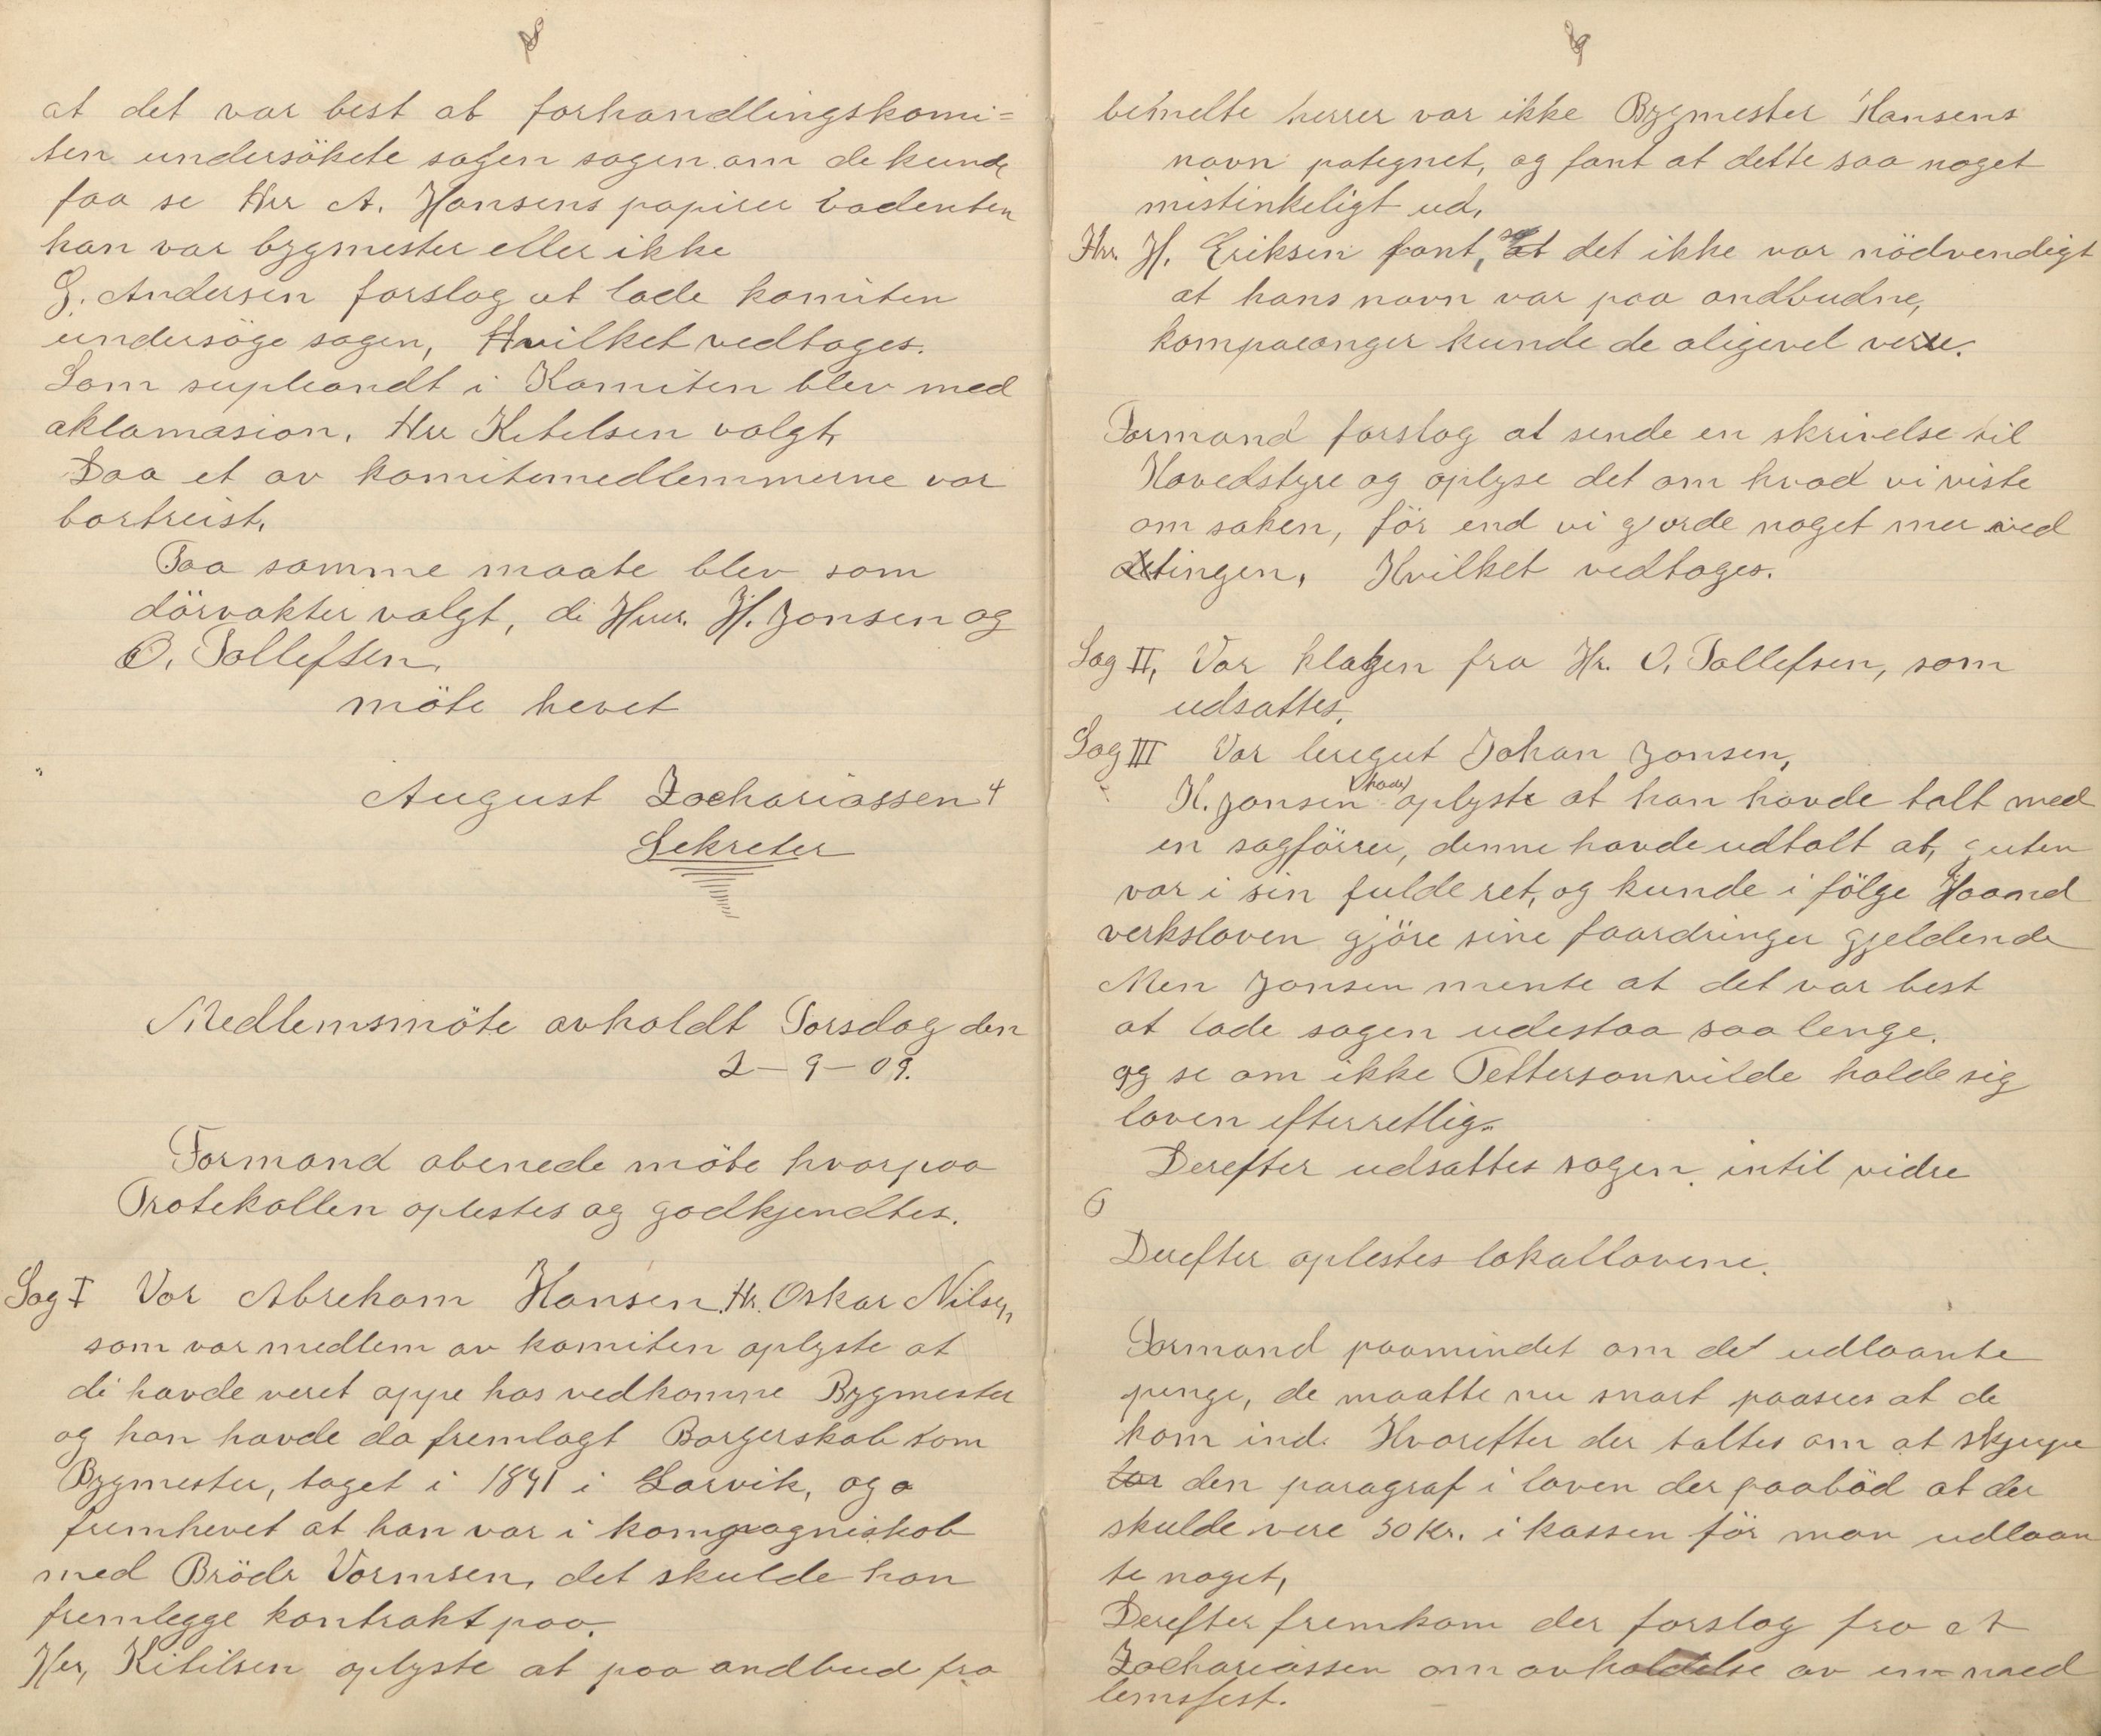 8
at det var best at forhandlingskomi=
ten undersökete sagen sagen om de kunde
faa se Herr A. Hansens papirer vadenten
han var bygmester eller ikke
G. Andersen forslog at lade komiten
undersöge sagen, Hvilket vedtoges.
Som supleandt i Komiten blev med
aklamasion, Herr Ketelsen valgt,
Daa et av komitemedlemmerne var
bortreist,
Paa samme maate blev som
dörvakter valgt, di Herrer. H. Jonsen og
O. Tollefsen.
möte hevet
August Zachariassen
Sekreter
Medlemsmöte avholdt Torsdag den
2–9–09.
Formand abenede möte hvorpaa
Protekollen oplestes og godkjendtes.
Sag I Var Abreham Hansen. Hr. Oskar Nilsen
som var medlem av komiten oplyste at
di havde veret oppe hos vedkomne Bygmester
og han havde da fremlagt Borgerskab som
Bygmester, taget i 1891 i Larvik, og
fremhevet at han var i kompagniskab
med Brödr Vormsen, det skulde han
fremlegge kontrakt paa.
Her, Kitilsen oplyste at paa andbud fra
9
bemelte herrer var ikke Bygmester Hansens
navn pategnet, og fant at dette saa noget
mistinkeligt ud,
Hr. H. Eriksen fant, at det ikke var nödvendigt
at hans navn var paa andbudne,
kompaeonger kunde de aligevel vere.
Formand forslog at sende en skrivelse til
Hovedstyre og oplyse det om hvad vi viste
om saken, för end vi gjorde noget mer ved
tingen, Hvilket vedtoges.
Sag II, Var klagen fra Hr. O. Tollefsen, som
udsattes.
Sag III Var leregut Johan Jonsen,
H. Jonsen (havde) oplyste at han havde talt med
en sagförrer, denne havde udtalt at, guten
var i sin fulde ret, og kunde i fölge Haand
verksloven gjöre sine faardringer gjeldende
Men Jonsen mente at det var best
at lade sagen udestaa saa lenge.
og se om ikke Petterson vilde holde sig
loven efterretlig.
Derefter udsattes sagen. intil vidre
Derefter oplestes lokallovene.
Formand paamindet om det udlaante
penge, de maatte nu snart paasees at de
kom ind. Hvorefter der taltes om at skjerpe
den paragraf i loven der paaböd at der
skulde vere 30 Kr. i kassen för man udlaan
te noget,
Derefter fremkom der forslag fra A
Zachariassen om avholdelse av en med
lemsfest.